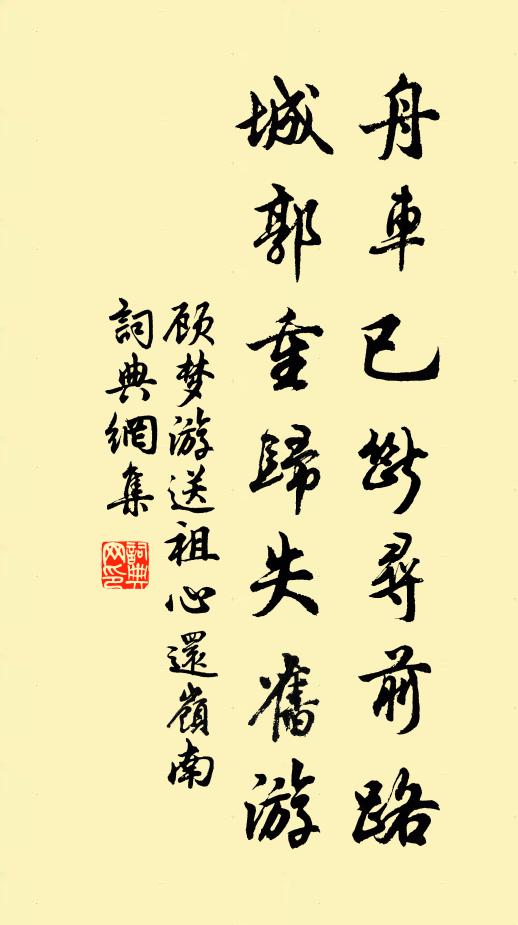 舟車已斷尋前路
城郭重歸失舊游
顾梦游送祖心還嶺南
詞典網集
詞典网印